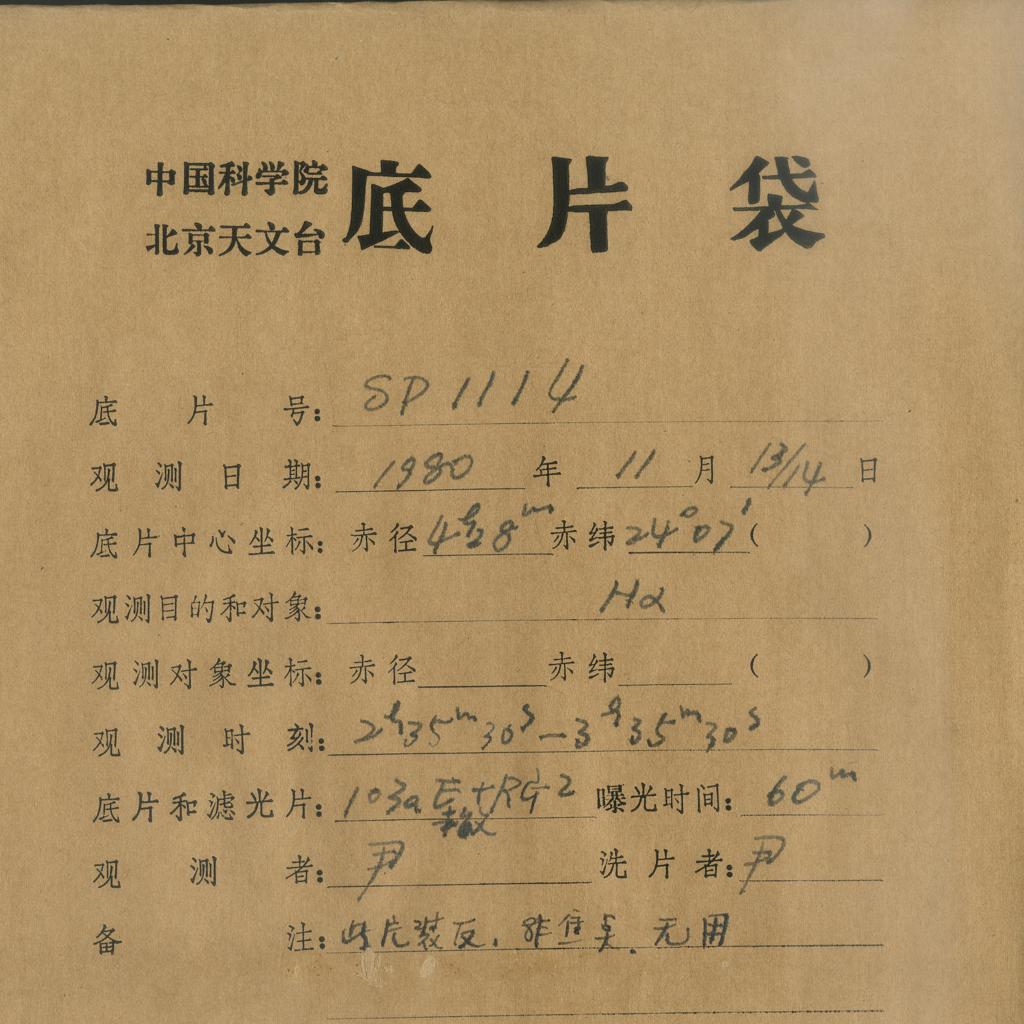 中国科学院
北京天文台
底片袋
底片号：SP1114
观测日期：1980年11月13/14日
底片中心坐标：赤径4ʰ28ᵐ赤纬24°07′（ ）
观测目的和对象：Hα
观测对象坐标：赤径 赤纬 （ ）
观测时刻：2ʰ35ᵐ30ˢ—3ʰ35ᵐ30ˢ
底片和滤光片：103aE+RG2 曝光时间：60ᵐ
敏
观测者：尹 洗片者：尹
备注：此片装反，非焦点．无用